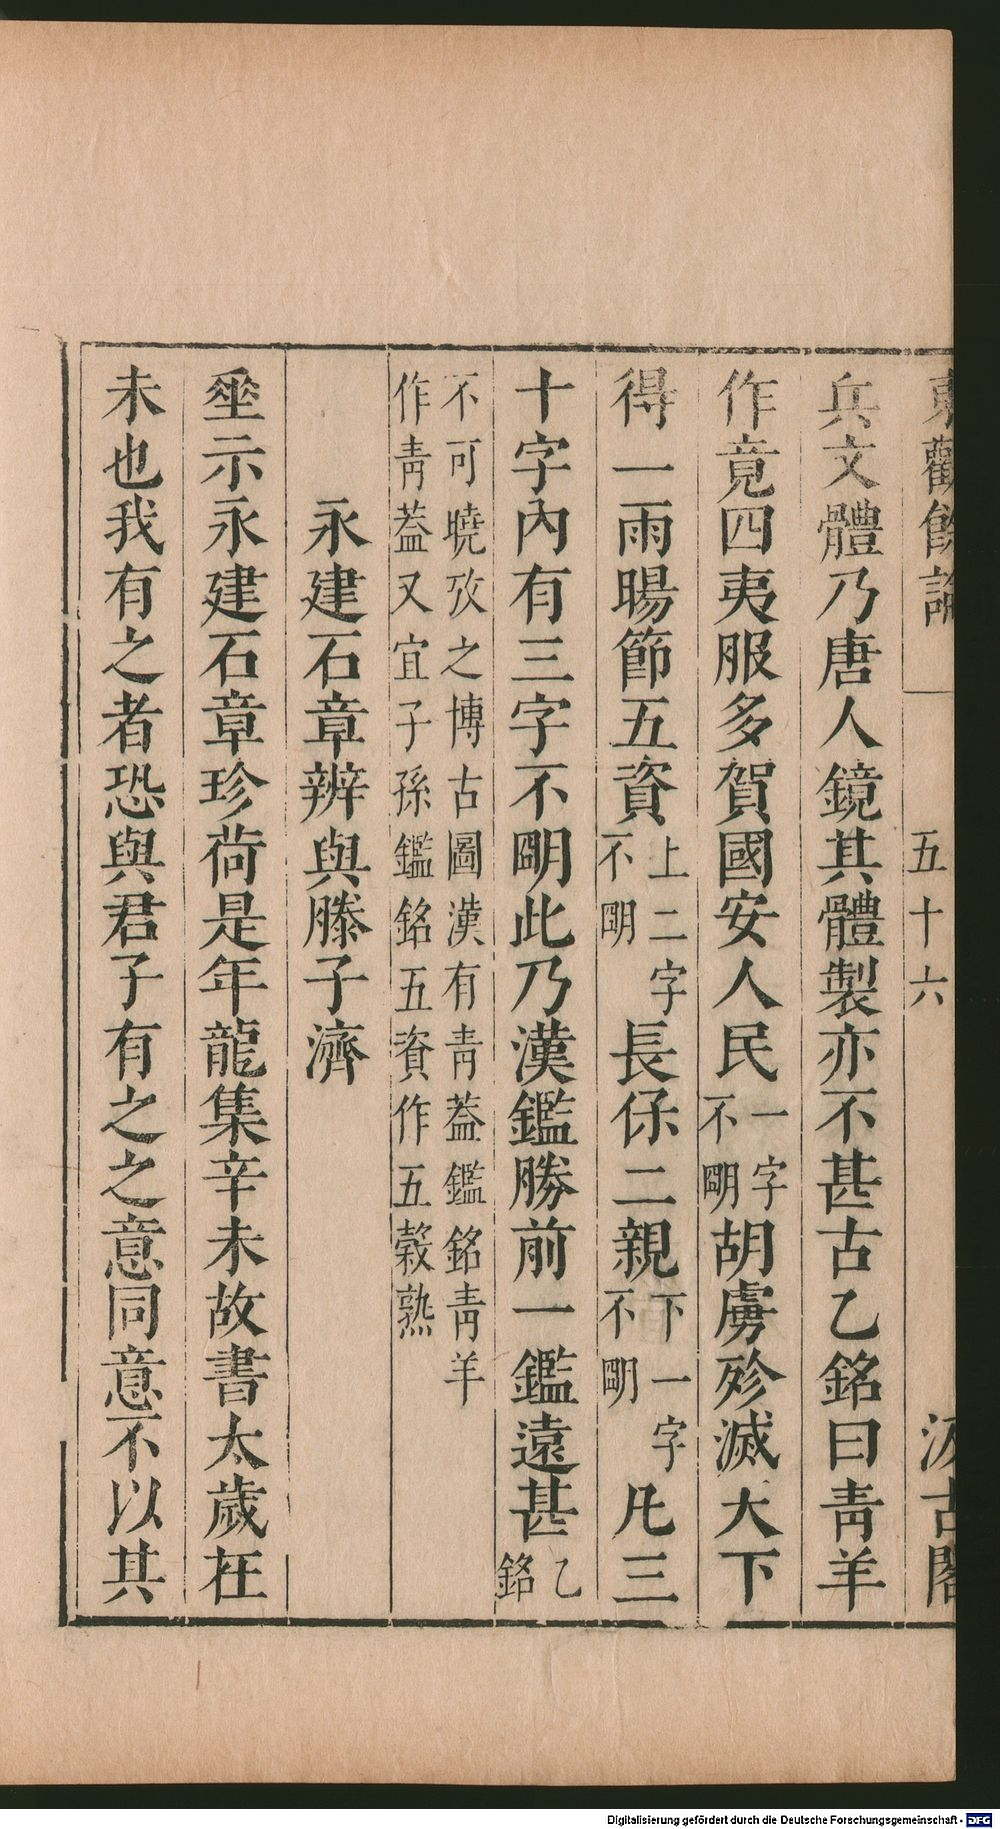 東觀餘論 五十六 汲古閣
兵文體乃唐人鏡其體製亦不甚古乙銘曰靑羊
作竟四夷服多賀國安人民一字不朙胡虜殄滅大下
得一雨暘節五資上二字不朙長保二親下一字不朙凡三
十字內有三字不朙此乃漢鑑勝前一鑑遠甚乙銘
不可曉攷之博古圖漢有靑蓋鑑銘靑羊
作靑蓋又宜子孫鑑銘五資作五穀熟
永建石章辨與滕子濟
垂示永建石章珍荷是年龍集辛未故書太歲在
未也我有之者恐與君子有之之意同意不以其
Digitalisierung gefördert durch die Deutsche Forschungsgemeinschaft - DFG